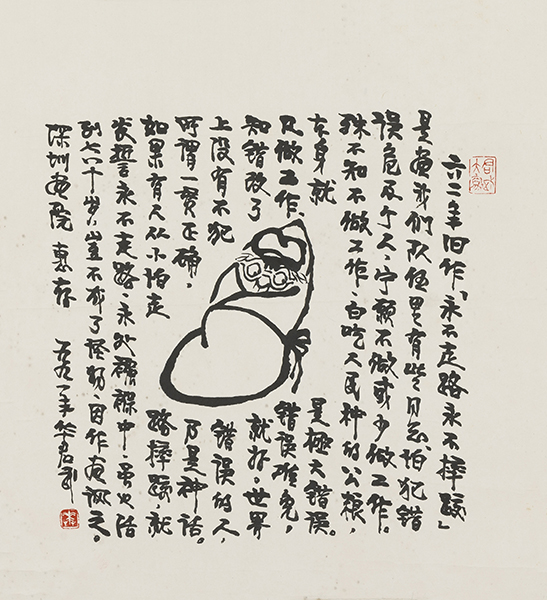 六二年旧作「永不走路永不摔跤」
是画我们队伍里有些同志怕犯错
误危及个人、宁愿不做或少做工作。
殊不知不做工作、白吃人民种的公粮,
本身就是极大错误。
凡做工作、错误难免,
知错改了就好。世界
上没有不犯错误的人,
所谓一贯正确,乃是神话。
如果有人从小怕走路摔跤、就
发誓永不走路、永处襁褓中、虽活
到七八十岁、岂不成了怪物、因作画讽之。
深圳画院 惠存 一九九一年 华君武